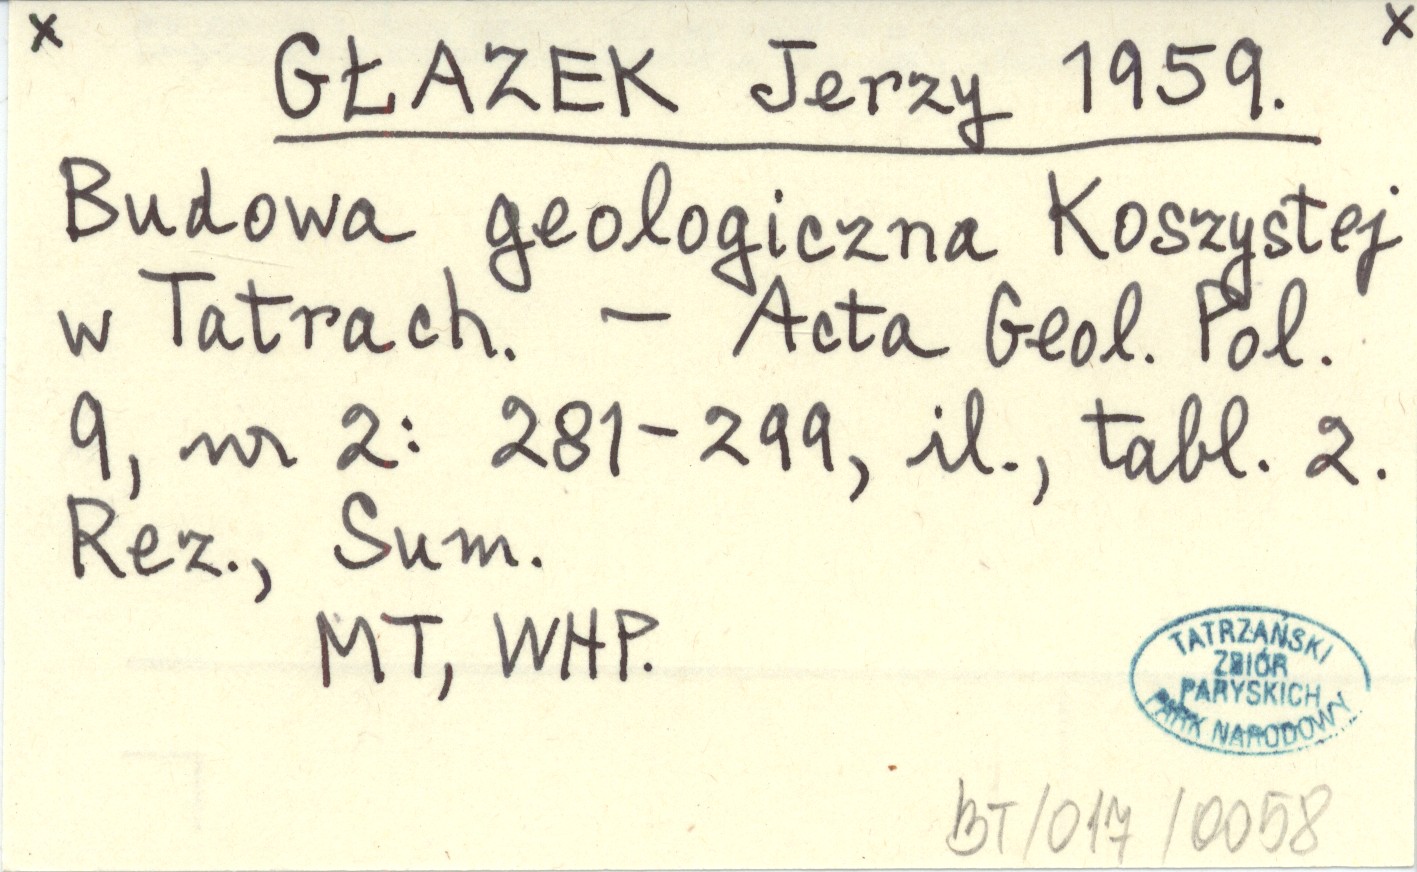 x x
GŁAZEK Jerzy 1959.
Budowa geologiczna Koszystej
w Tatrach. – Acta Geol. Pol.
9, nr 2: 281–299, il., tabl. 2.
Rez., Sum.
MT, WHP.
TATRZAŃSKI
ZBIÓR
PARYSKICH
PARK NARODOWY
BT/017/0058